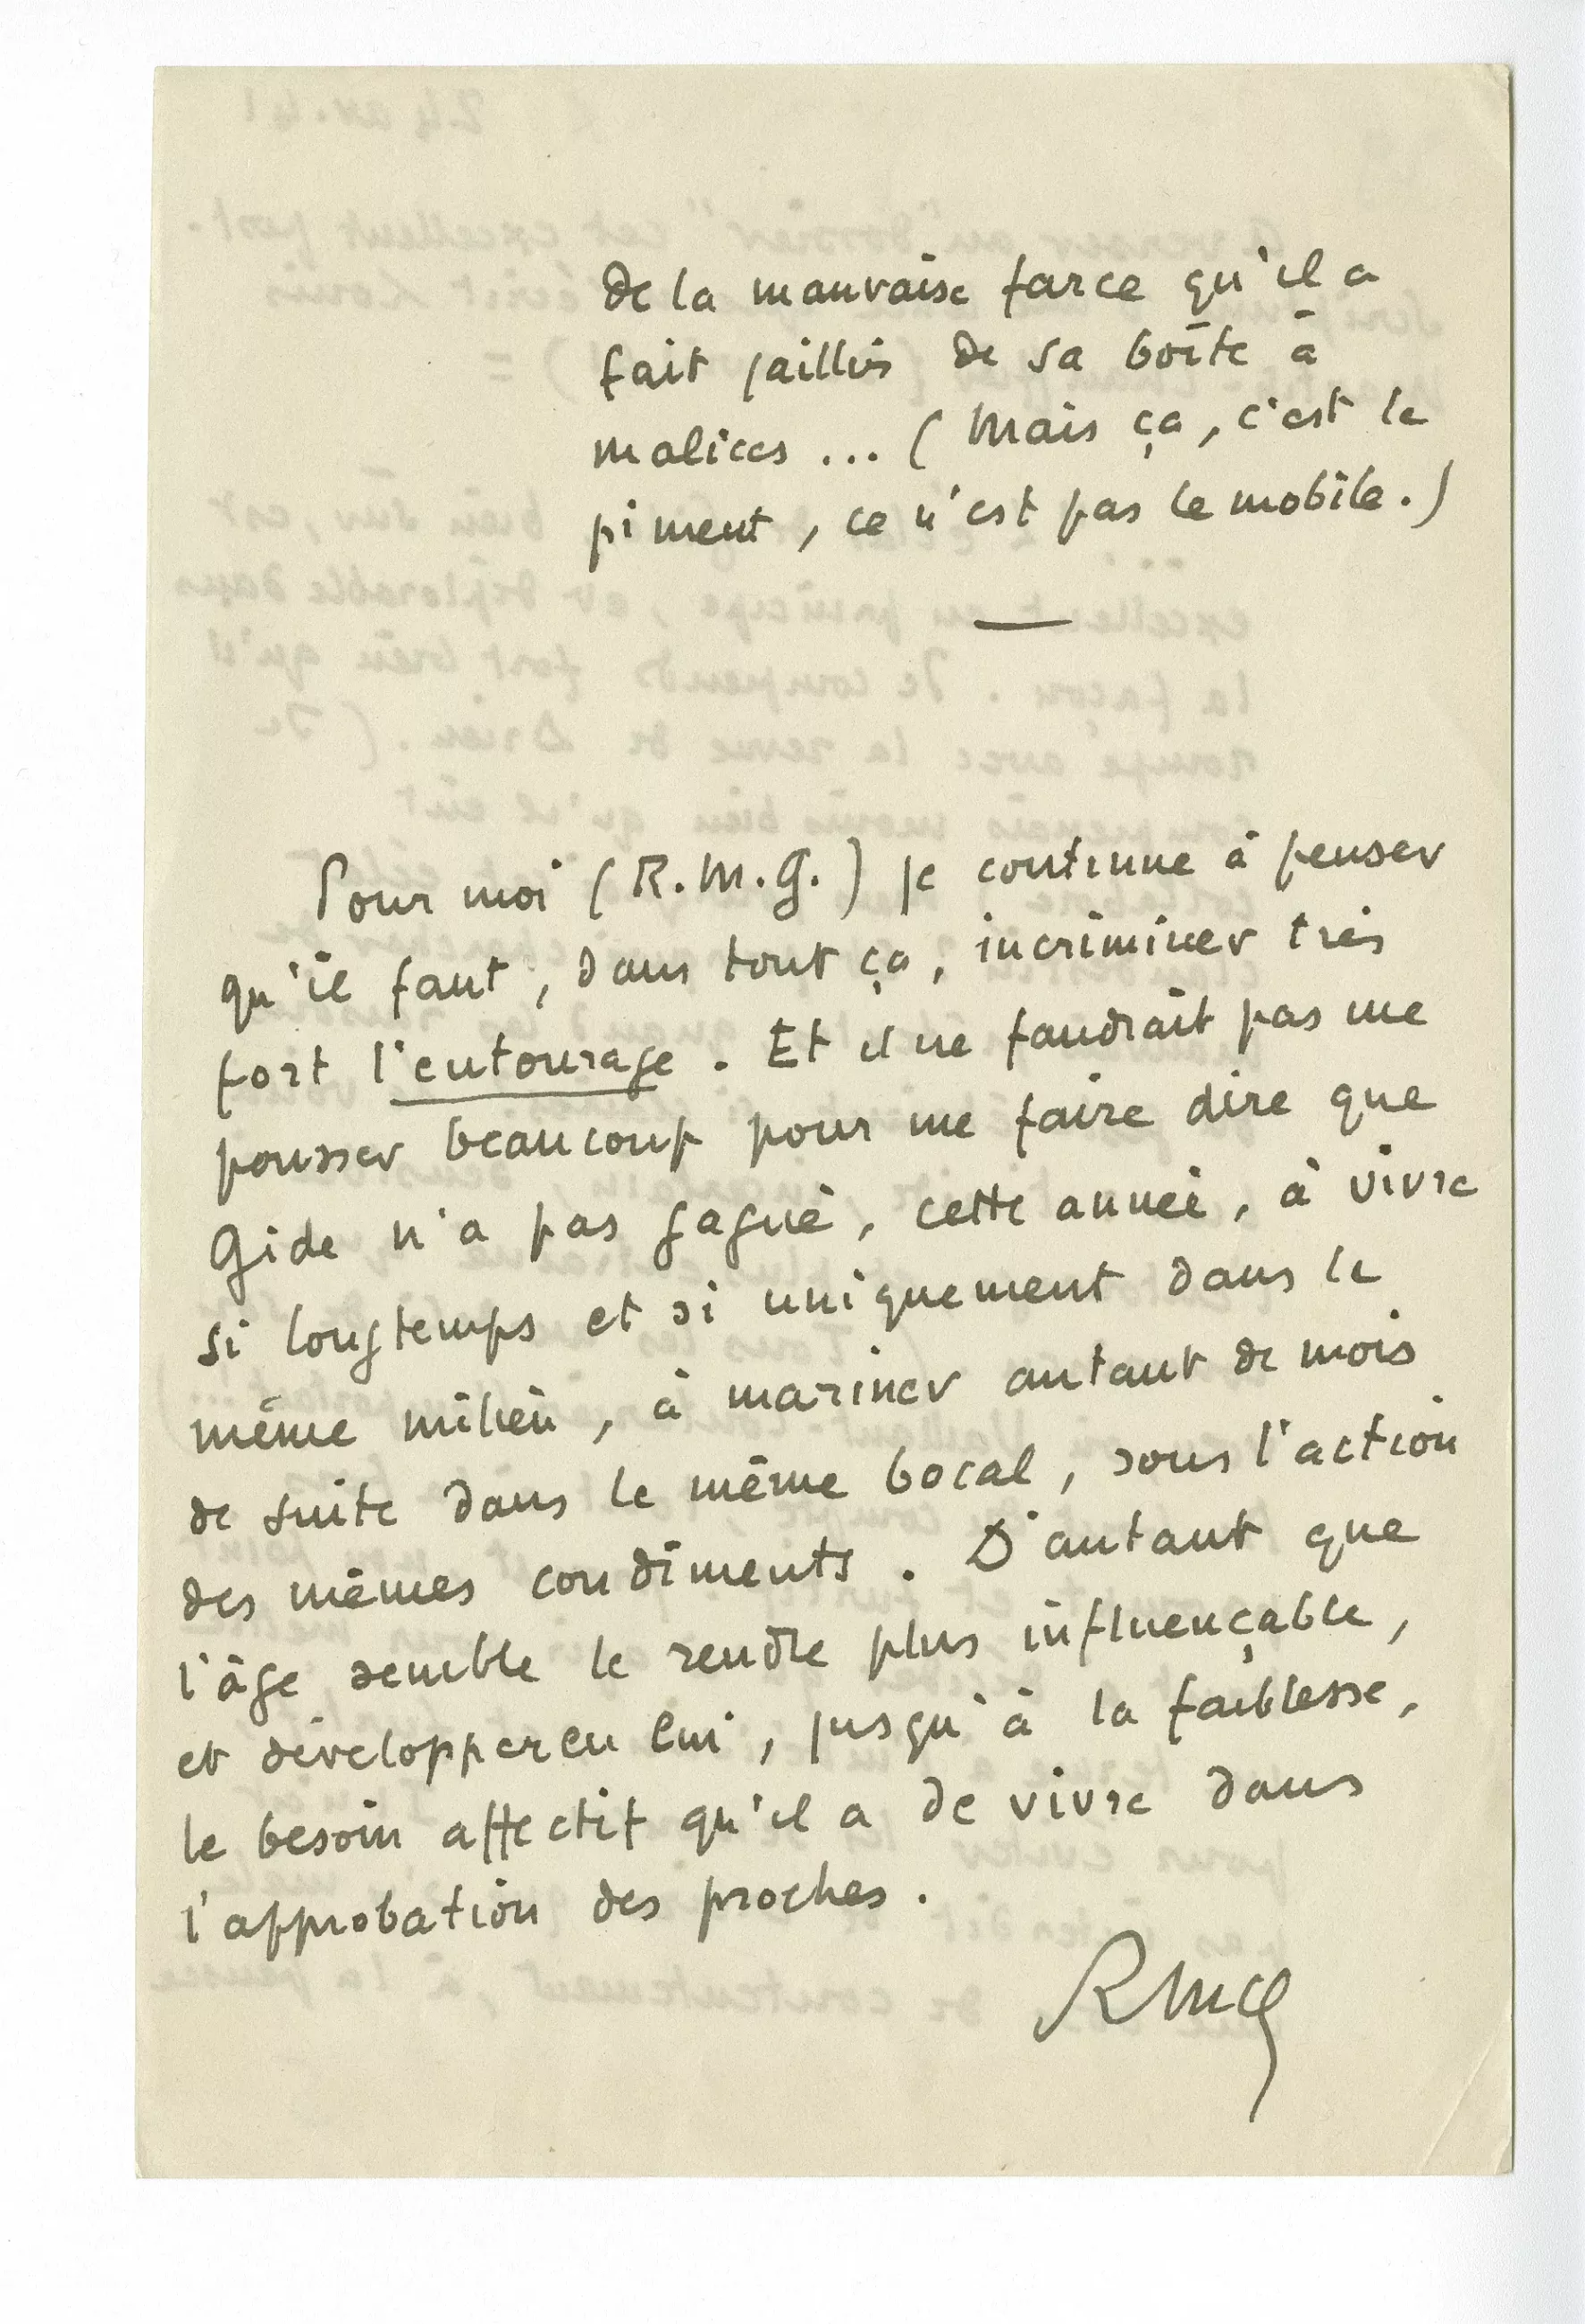 de la mauvaise farce qu'il a
fait jaillir de sa boîte à
malices ... (Mais ça, c'est le
piment, ce n'est pas le mobile.)
Pour moi (R.M.G.) je continue à penser
qu'il faut, dans tout ça, incriminer très
fort l'entourage. Et il ne faudrait pas me
pousser beaucoup pour me faire dire que
Gide n'a pas gagné, cette année, à vivre
si longtemps et si uniquement dans le
même milieu, à mariner autant de mois
de suite dans le même bocal, sous l'action
des mêmes condiments. D'autant que
l'âge semble le rendre plus influençable,
et développer en lui, jusqu'à la faiblesse,
le besoin affectif qu'il a de vivre dans
l'approbation des proches.
RMG